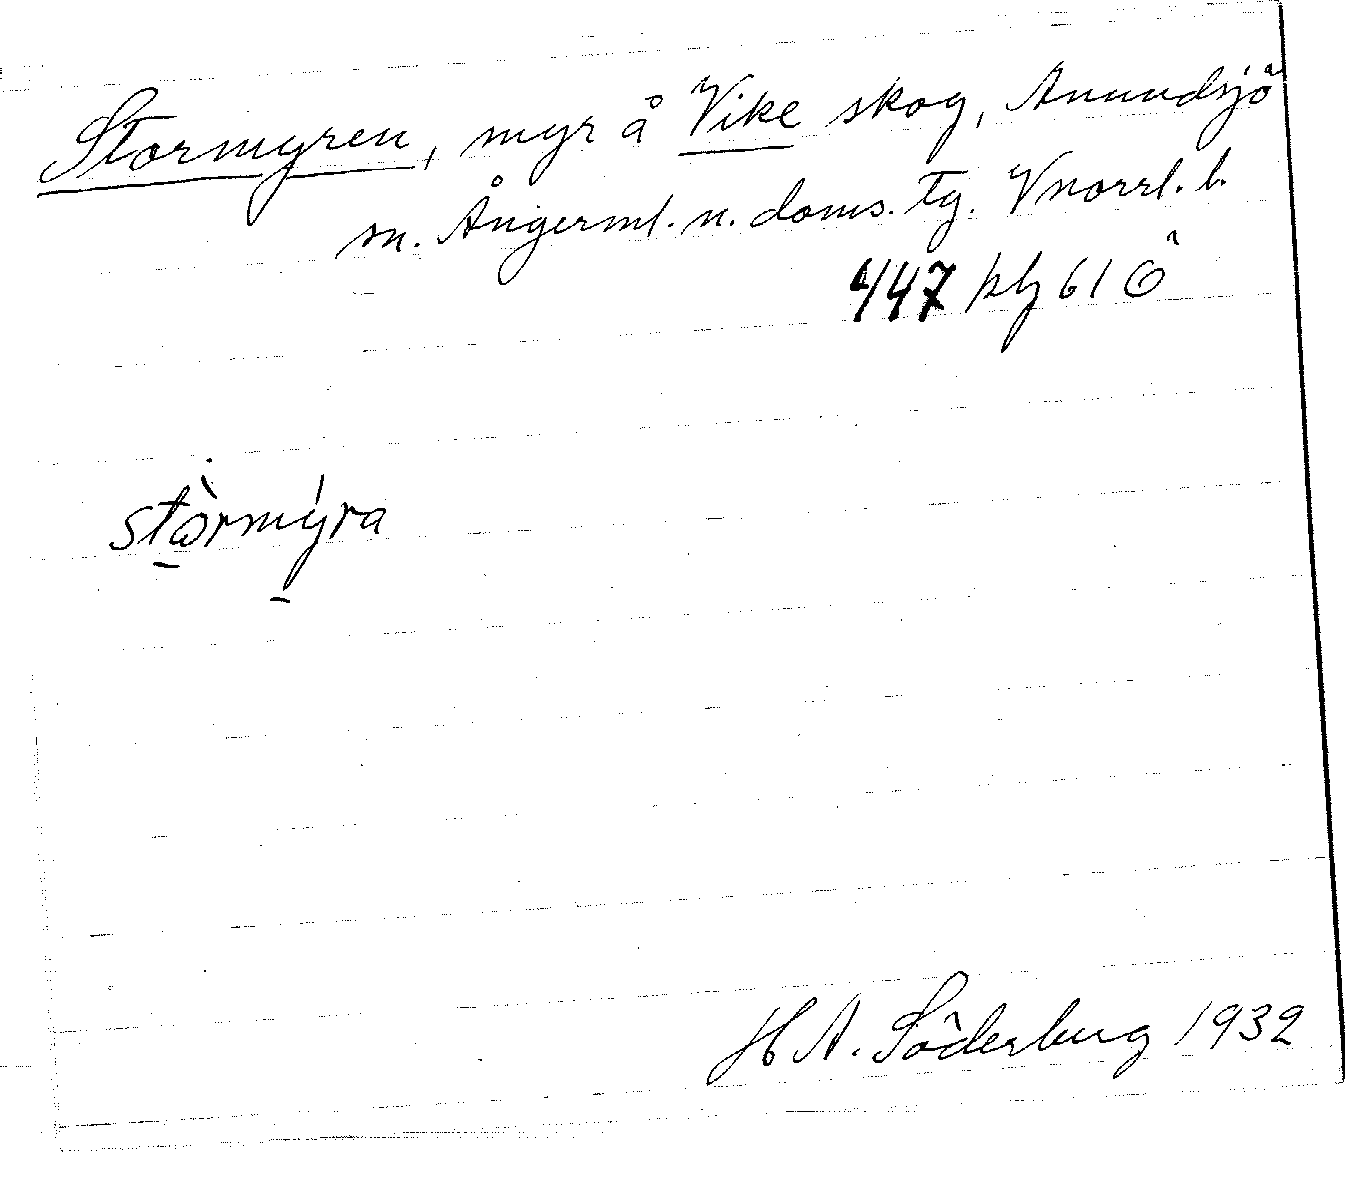 Stormyren, myr å Vike skog, Anundsjö
sn. Ångerml. n. doms. tg. Vnorrl. l.
447 kbj 61 Ö
stòrmýra
H A. Söderberg 1932